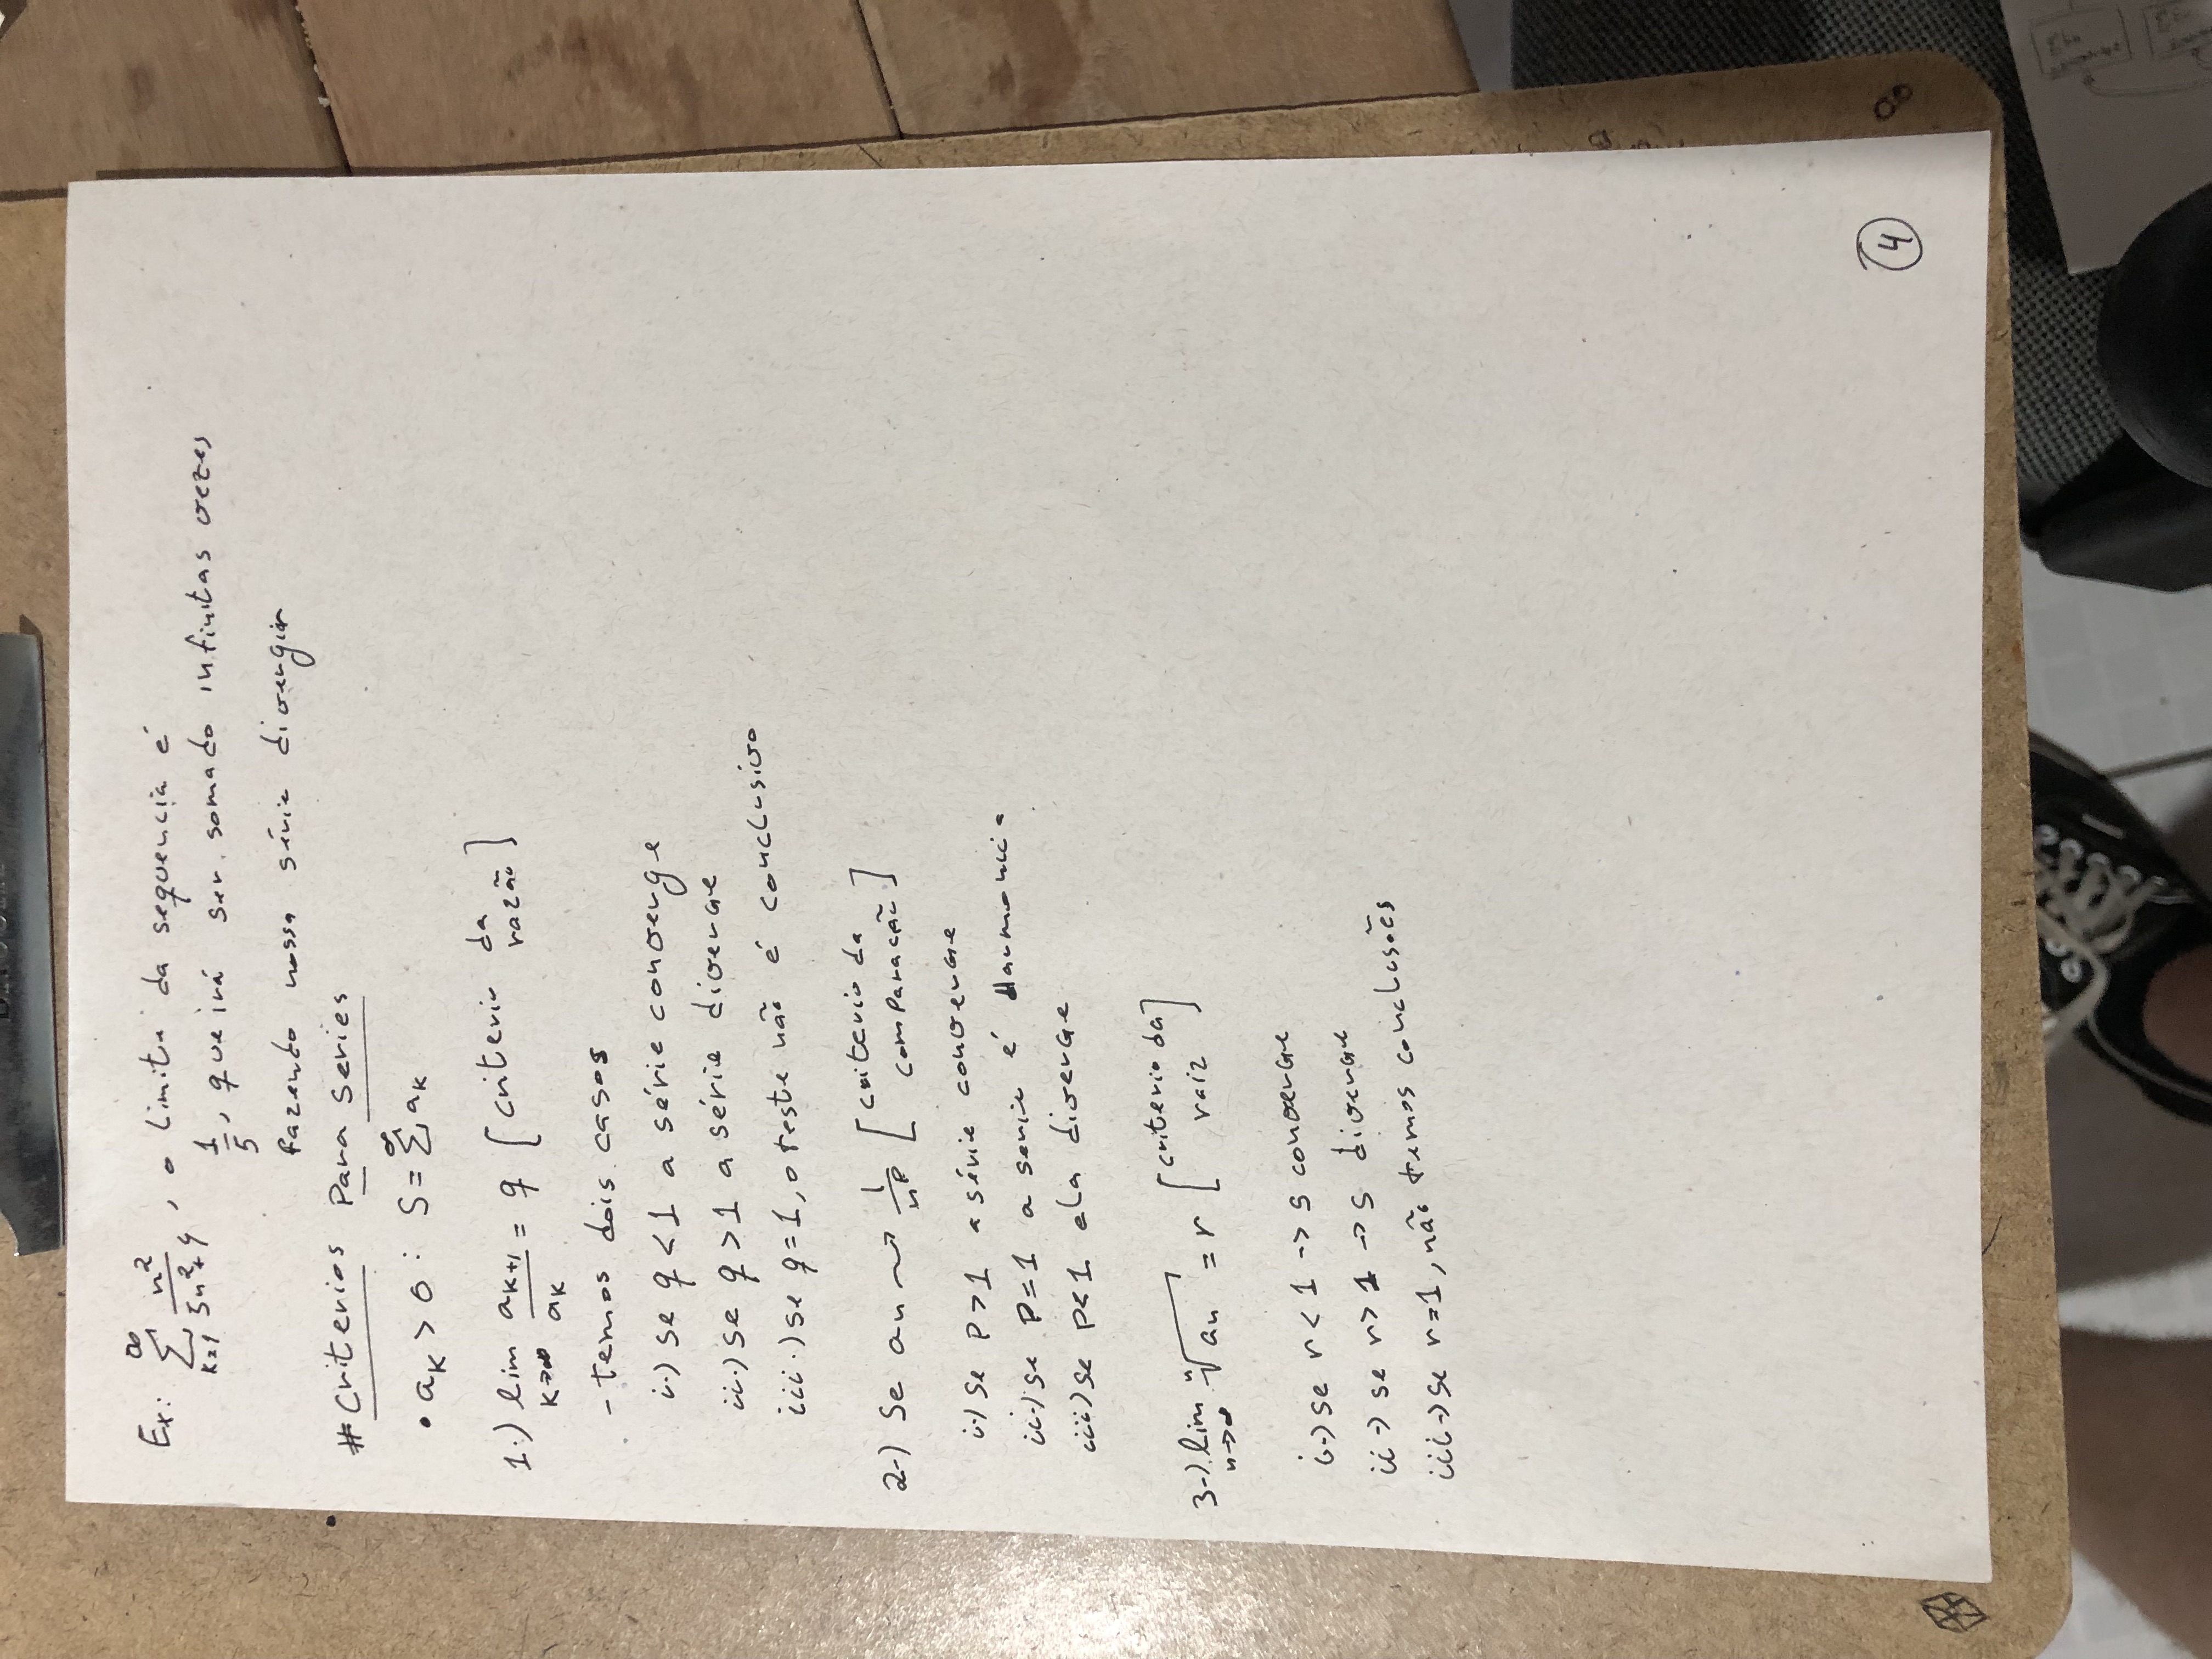 Ex: ∞ Σ k=1 n²/5n²+4, o limite da sequencia é
1/5, que irá ser somado infinitas vezes
fazendo nossa série divergir
# Criterios Para Series
• aK > 0: S = ∞ Σ aK
1.) lim K→∞ aK+1/aK = q [criterio da razão]
- temos dois casos
i.) se q < 1 a série converge
ii.) se q > 1 a série diverge
iii.) se q = 1, o teste não é conclusivo
2-) Se an ~→ 1/n^p [criterio da comparação]
i-) se P > 1 a série converge
ii-) se P = 1 a serie é Harmonica
iii) se P < 1 ela diverge
3-) lim n→∞ ⁿ√an = r [criterio da raiz]
i-) se r < 1 -> s converge
ii-) se r > 1 -> s diverge
iii-) se r = 1, não temos conclusões
4